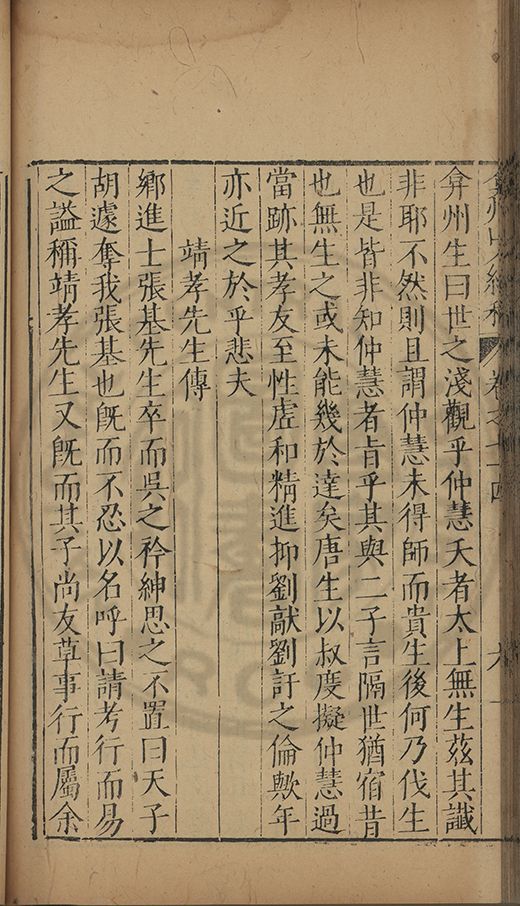 弇州生曰世之淺觀乎仲慧夭者太上無生茲其讖
非耶不然則且謂仲慧未得師而貴生後何乃伐生
也是皆非知仲慧者旨乎其與二子言隔世猶宿昔
也無生之或未能幾於達矣唐生以叔度擬仲慧過
當跡其孝友至性虛和精進抑劉獻劉訏之倫歟年
亦近之於乎悲夫
靖孝先生傳
鄉進士張基先生卒而吳之衿紳思之不置曰天子
胡遽奪我張基也既而不忍以名呼曰請考行而易
之謚稱靖孝先生又既而其子尚友草事行而屬余